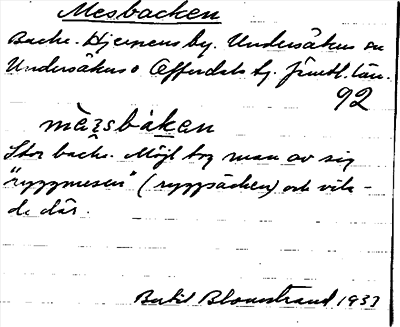 Mesbacken
Backe. Hjerpens by. Undersåkers sn
Undersåkers o Offerdals tg. Jämtl. län.
92
mèsbàkan
Stor backe. Möjl tog man av sig
"ryggmesen" (ryggsäcken) och vila-
de där.
Bertil Blomstrand 1933